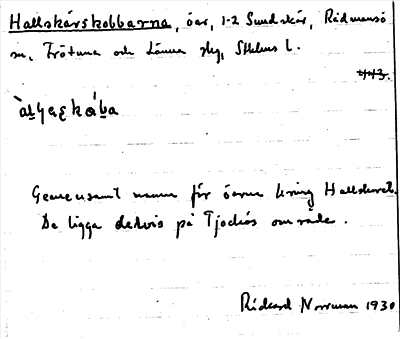 Hallskärskobbarna, öar, 1-2 Sundskär, Rådmansö
sn, Frötuna och Länna skg, Sthlms l.
443.
Gemensamt namn för öarna kring Hallskäret.
De ligga delvis på Tjockös område.
Rickard Norrman 1930